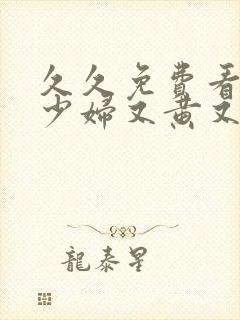 久久免費看
少婦又黄又
龍泰星